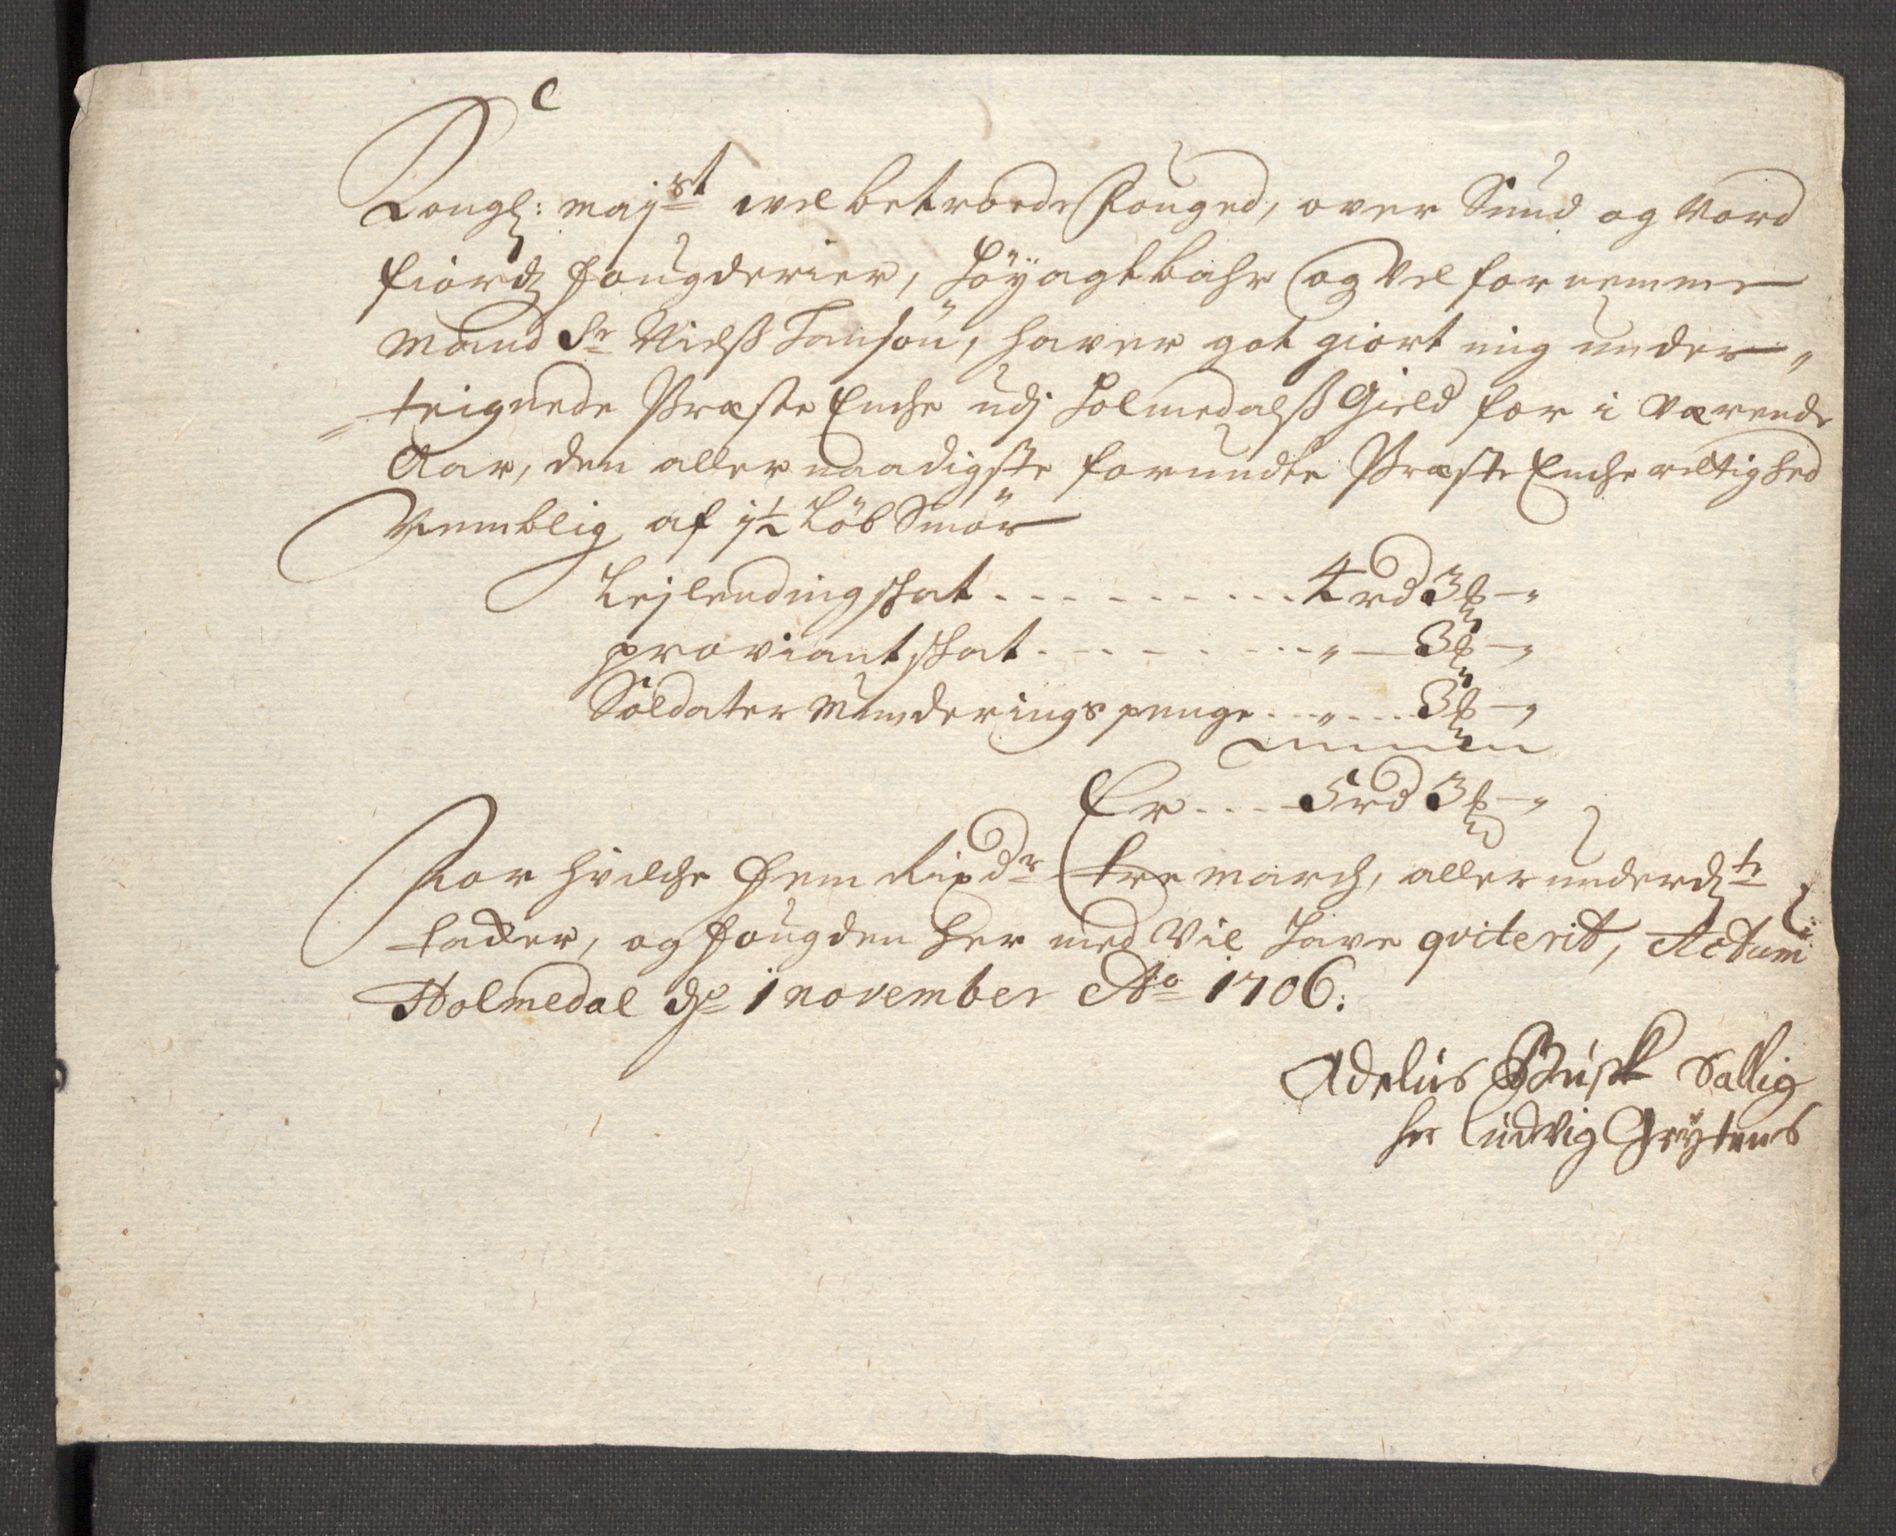 C
Kongl: mayst vel betroede Fouged, over Sund og Nord
fiordz fougderier, Höyagtbahr og Vel fornemme
Mand Sr Nielß Hansön, haver got giort mig under,,
teignede Præste Enche udj Holmedalß Gield for i Værende
Aar, den aller naadigste forundte Præste Enche rettighed
Nemblig af 1½ Löb Smör
Lejlendingskat - - - - - - - - - 4 rd 3 ß – „
proviantskat - - - - - - - - - „ — 3 ß – „
Soldater Munderings penge . . „ . . . 3 ß – „
Er . . . . 5 rd 3 ß – „
For hvilche fem Rixdr tre march, aller underdte
tacker, og fougden her med Vil have qviterit, Actum
Holmedal de 1 november Ao 1706:
Adelüs Büsk Sallig
her Lüdvig Grÿtens